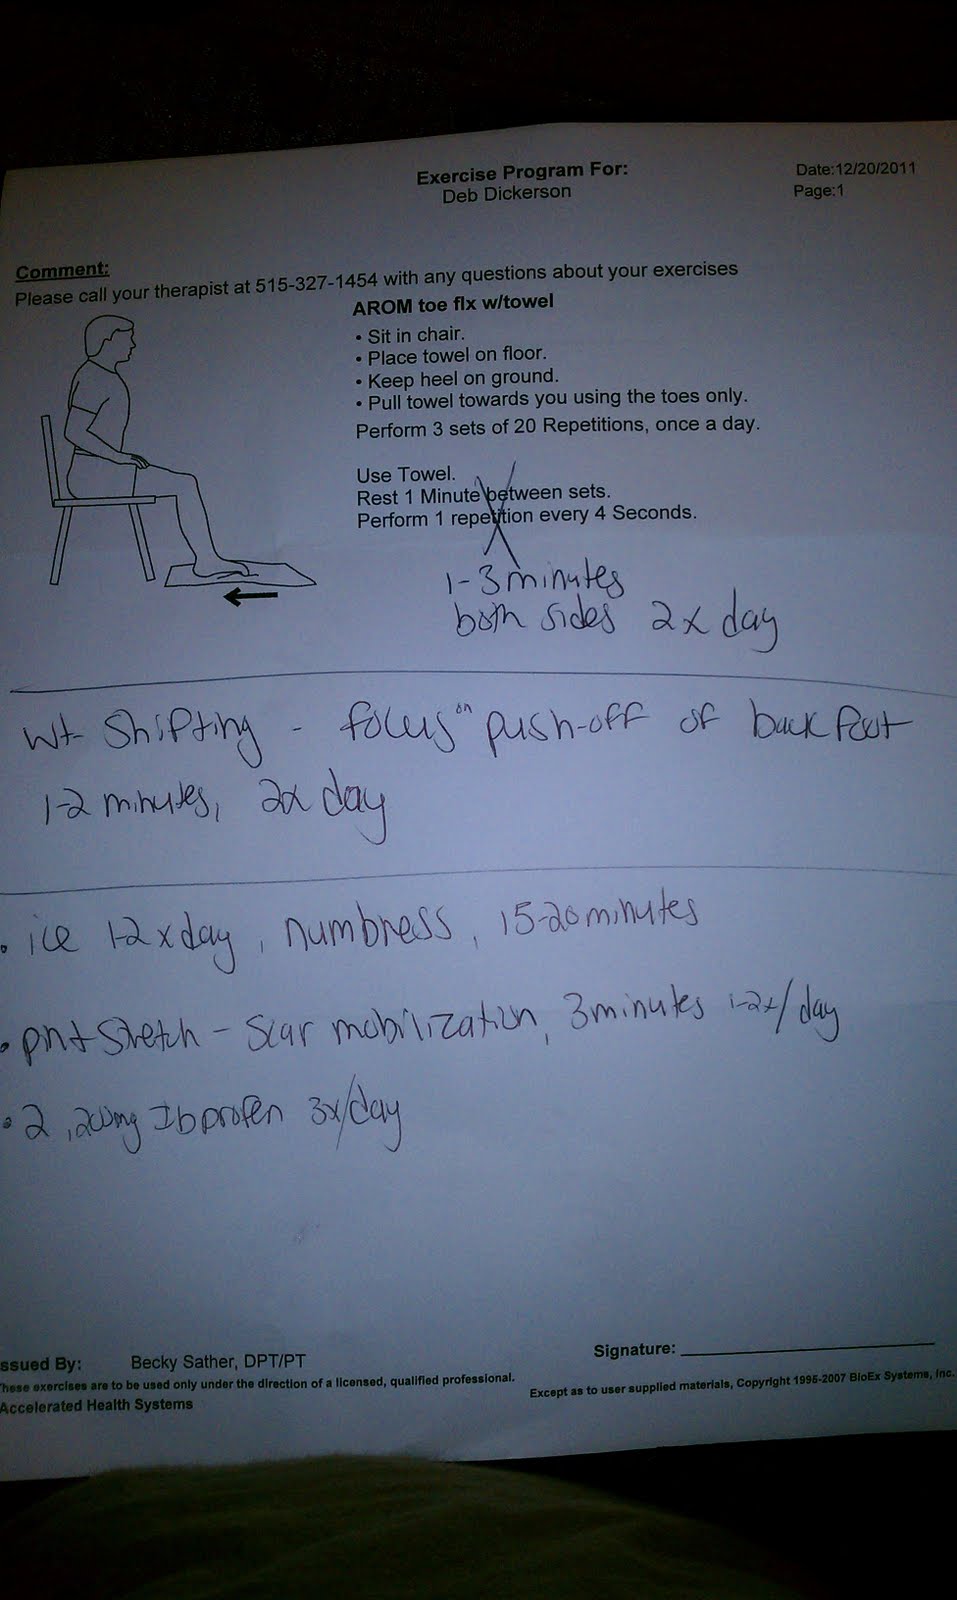 Exercise Program For:
Deb Dickerson
Date:12/20/2011
Page:1
Comment:
Please call your therapist at 515-327-1454 with any questions about your exercises
AROM toe flx w/towel
• Sit in chair.
• Place towel on floor.
• Keep heel on ground.
• Pull towel towards you using the toes only.
Perform 3 sets of 20 Repetitions, once a day.
Use Towel.
Rest 1 Minute between sets.
Perform 1 repetition every 4 Seconds.
1-3 minutes
both sides 2x day
wt shifting - focus on push-off of back foot
1-2 minutes, 2x day
• ice 1-2 x day, numbness, 15-20 minutes
• stretch - scar mobilization, 3 minutes 1-2x/day
• 2, 200mg Ibprofen 3x/day
ssued By: Becky Sather, DPT/PT
Signature:
hese exercises are to be used only under the direction of a licensed, qualified professional.
Except as to user supplied materials, Copyright 1995-2007 BioEx Systems, Inc.
Accelerated Health Systems